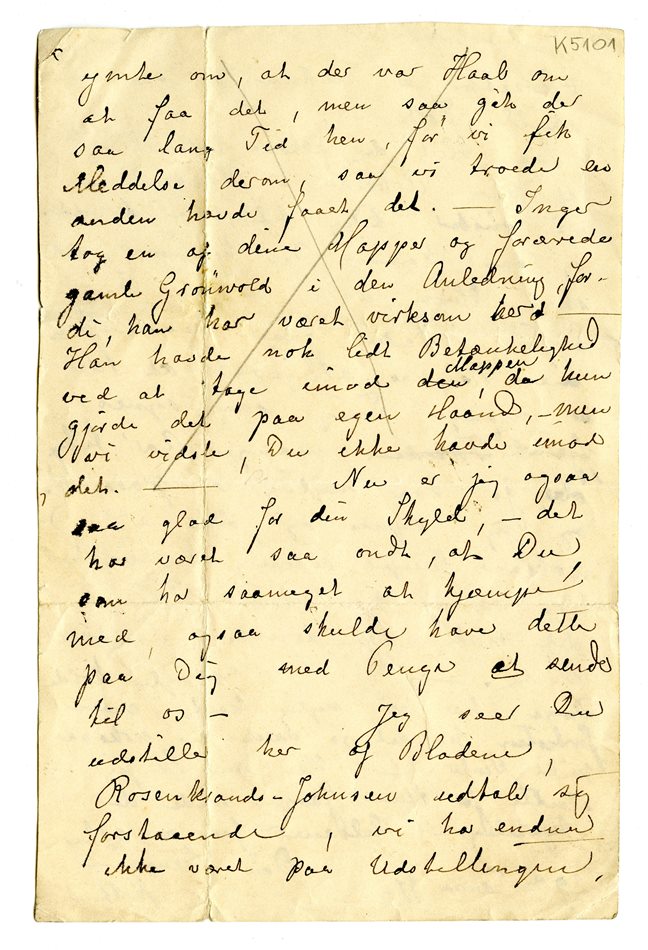 K5101
ymte om, at der var Haab om
at faa det, men saa gik der
saa lang Tid hen, før vi fik
Meddelse derom, saa vi troede en
anden havde faaet det. — Inger
tog en af dine Mapper og forærede
gamle Grønwold i den Anledning, for-
di, han har været virksom her
Han havde nok lidt Betænkelighed
ved at tage imod Mappen, da hun
gjorde det paa egen Haand, – men
vi vidste, Du ikke havde imod
det. — Nu er jeg ogsaa
saa glad for din Skyld, – det
har været saa ondt, at Du
som har saameget at kjæmpe
med, ogsaa skulde have dette
paa Dig med Penge at sende
til os – Jeg seer Du
udstiller her af Bladene,
Rosenkrands-Johnsen udtaler sig
forstaaende, vi har endnu
ikke været paa Udstillingen,